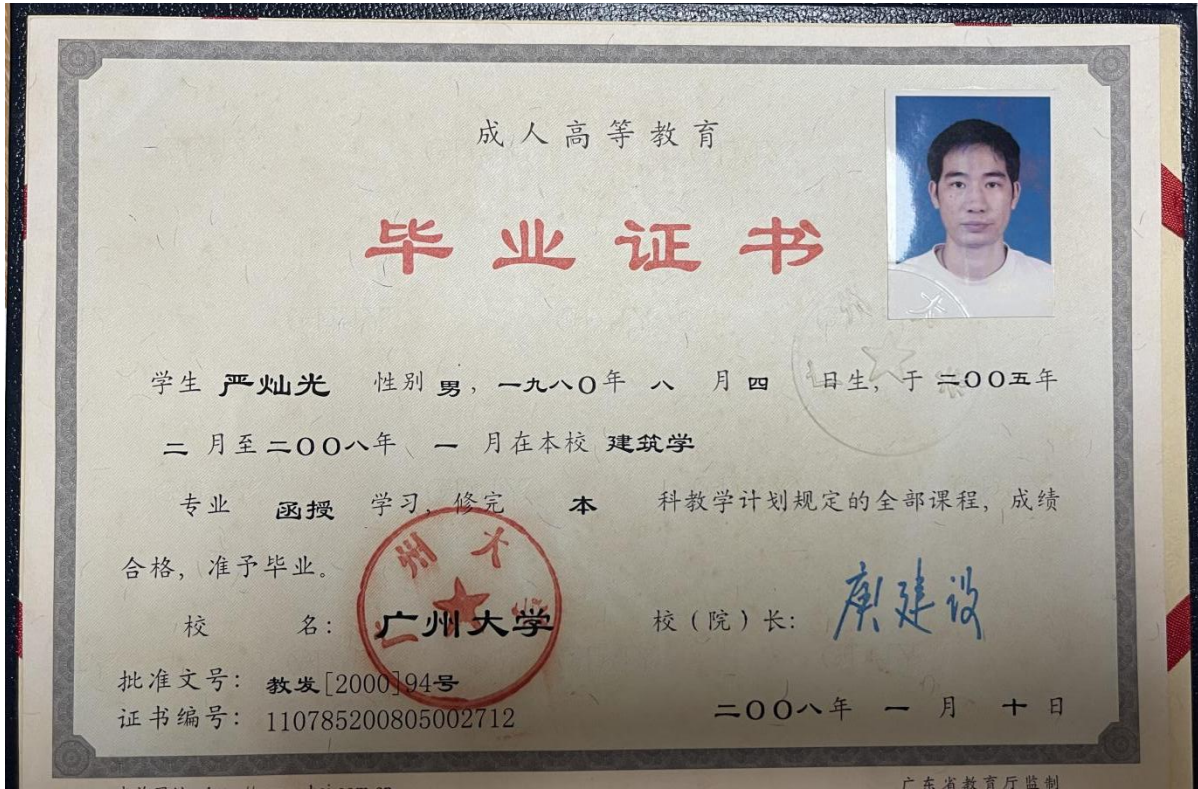 成人高等教育
毕业证书
学生 严灿光 性别 男，一九八〇年 八 月 四 日生，于 二〇〇五年
二 月至 二〇〇八年 一 月在本校 建筑学
专业 函授 学习，修完 本 科教学计划规定的全部课程，成绩
合格，准予毕业。
校 名：广州大学 校（院）长：庾建设
批准文号：教发[2000]94号
证书编号：110785200805002712 二〇〇八年 一 月 十 日
广东省教育厅监制